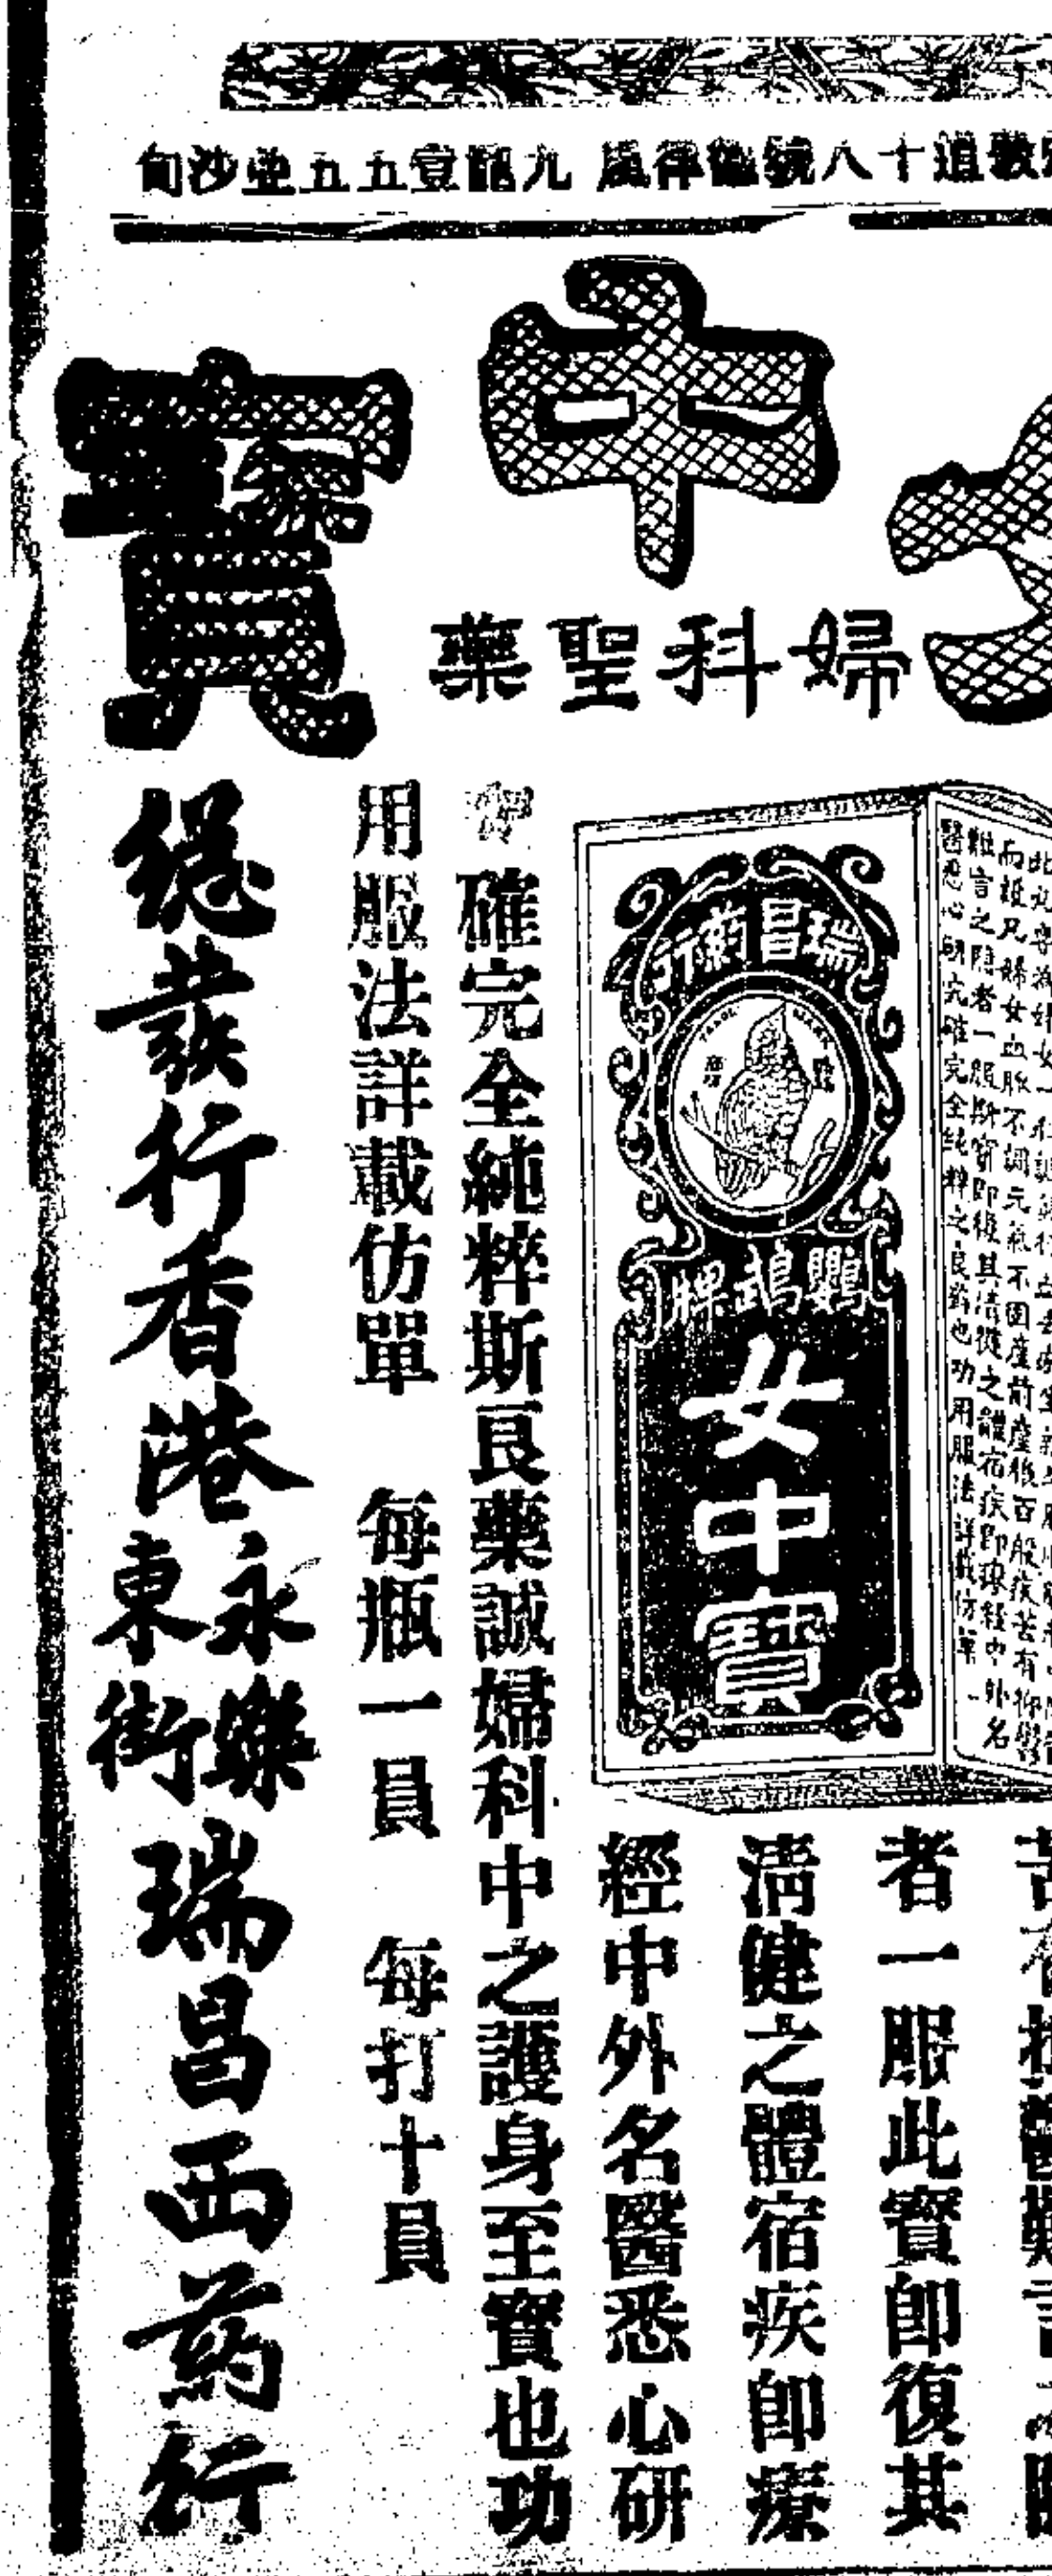 敎道十八號德律風 九龍壹五五亞沙甸
女中寶
婦科聖藥
瑞昌藥行
TRADE MARK
鸚鵡牌
女中寶
而設凡婦女血脉不調元氣不固產前產後百般疾苦有抑鬱
難言之隱者一服斯寶即復其清健之體宿疾即療經中外名
醫悉心研究確完全純粹之良劑也功用服法詳載仿單
者一服此寶卽復其
淸健之體宿疾卽療
經中外名醫悉心研
確完全純粹斯良藥誠婦科中之護身至寶也功
用服法詳載仿單 每瓶一員 每打十員
總發行香港永樂東街瑞昌西葯行